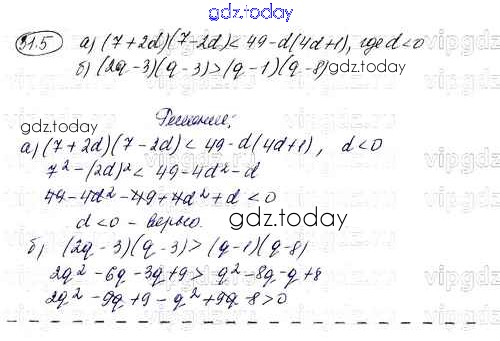 gdz.today
31.5 а) (7+2d)(7-2d)<49-d(4d+1), где d<0
б) (2q-3)(q-3)>(q-1)(q-8) gdz.today
gdz.today Решение;
а) (7+2d)(7-2d)<49-d(4d+1), d<0
7²-(2d)²<49-4d²-d
49-4d²-49+4d²+d<0
d<0 - верно. gdz.today
б) (2q-3)(q-3)>(q-1)(q-8)
2q²-6q-3q+9>q²-8q-q+8
2q²-9q+9-q²+9q-8>0